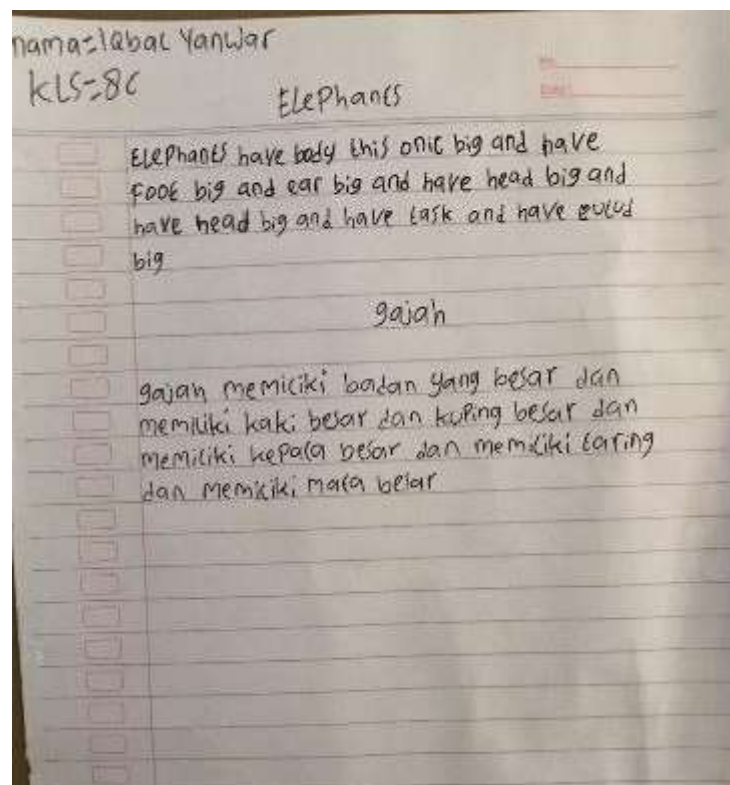 nama=Iqbal Yanwar
kls=8c
Elephants
Elephants have body this onic big and have
foot big and ear big and have head big and
have head big and have task and have
big
gajah
gajah memiliki badan yang besar dan
memiliki kaki besar dan kuping besar dan
memiliki kepala besar dan memiliki taring
dan memiliki mata besar